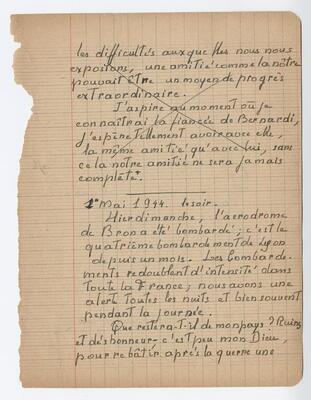 les difficultés auxquelles nous nous
exposions, une amitié comme la nôtre
pouvait être un moyen de progrès
extraordinaire.
J'aspire au moment où je
connaîtrai la fiancée de Bernardi,
j'espère tellement avoir avec elle,
la même amitié qu'avec lui, sans
cela notre amitié ne sera jamais
complète.
1er Mai 1944. le soir.
Hier dimanche, l'aérodrome
de Bron a été bombardé; c'est le
quatrième bombardement de Lyon
depuis un mois. Les bombarde-
ments redoublent d'intensité dans
toute la France; nous avons une
alerte toutes les nuits et bien souvent
pendant la journée.
Que restera-t-il de mon pays? Ruines
et déshonneur - c'est peu mon Dieu,
pour rebâtir après la guerre une